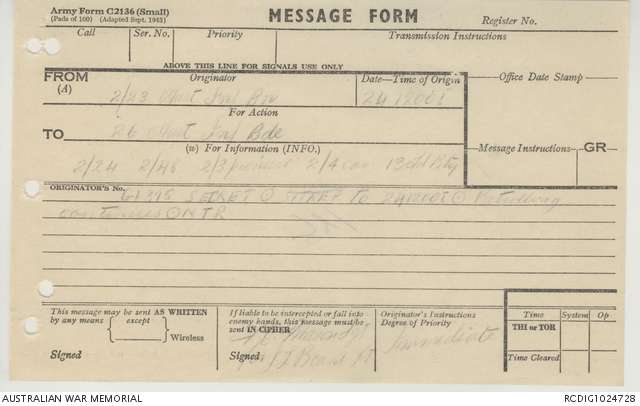 Army Form C2136 (Small)
(Pads of 100) (Adapted Sept. 1943)
MESSAGE FORM
Register No.
Call Ser. No. Priority Transmission Instructions
ABOVE THIS LINE FOR SIGNALS USE ONLY
FROM
(A)
Originator
Date—Time of Origin
Office Date Stamp
2/23 Aust Inf Bn
For Action
TO
26 Aust Inf Bde
(W) For Information (INFO.)
Message Instructions
GR
2/24 2/48 2/3 pioneer 2/4 13 Bty
ORIGINATOR'S No.
SECRET SITREP to Patrolling
continues NTR
This message may be sent AS WRITTEN
by any means except
Wireless
Signed
If liable to be intercepted or fall into
enemy hands, this message must be
sent IN CIPHER
Signed
Originator's Instructions
Degree of Priority
Immediate
Time System Op
THI or TOR
Time Cleared
AUSTRALIAN WAR MEMORIAL
RCDIG1024728